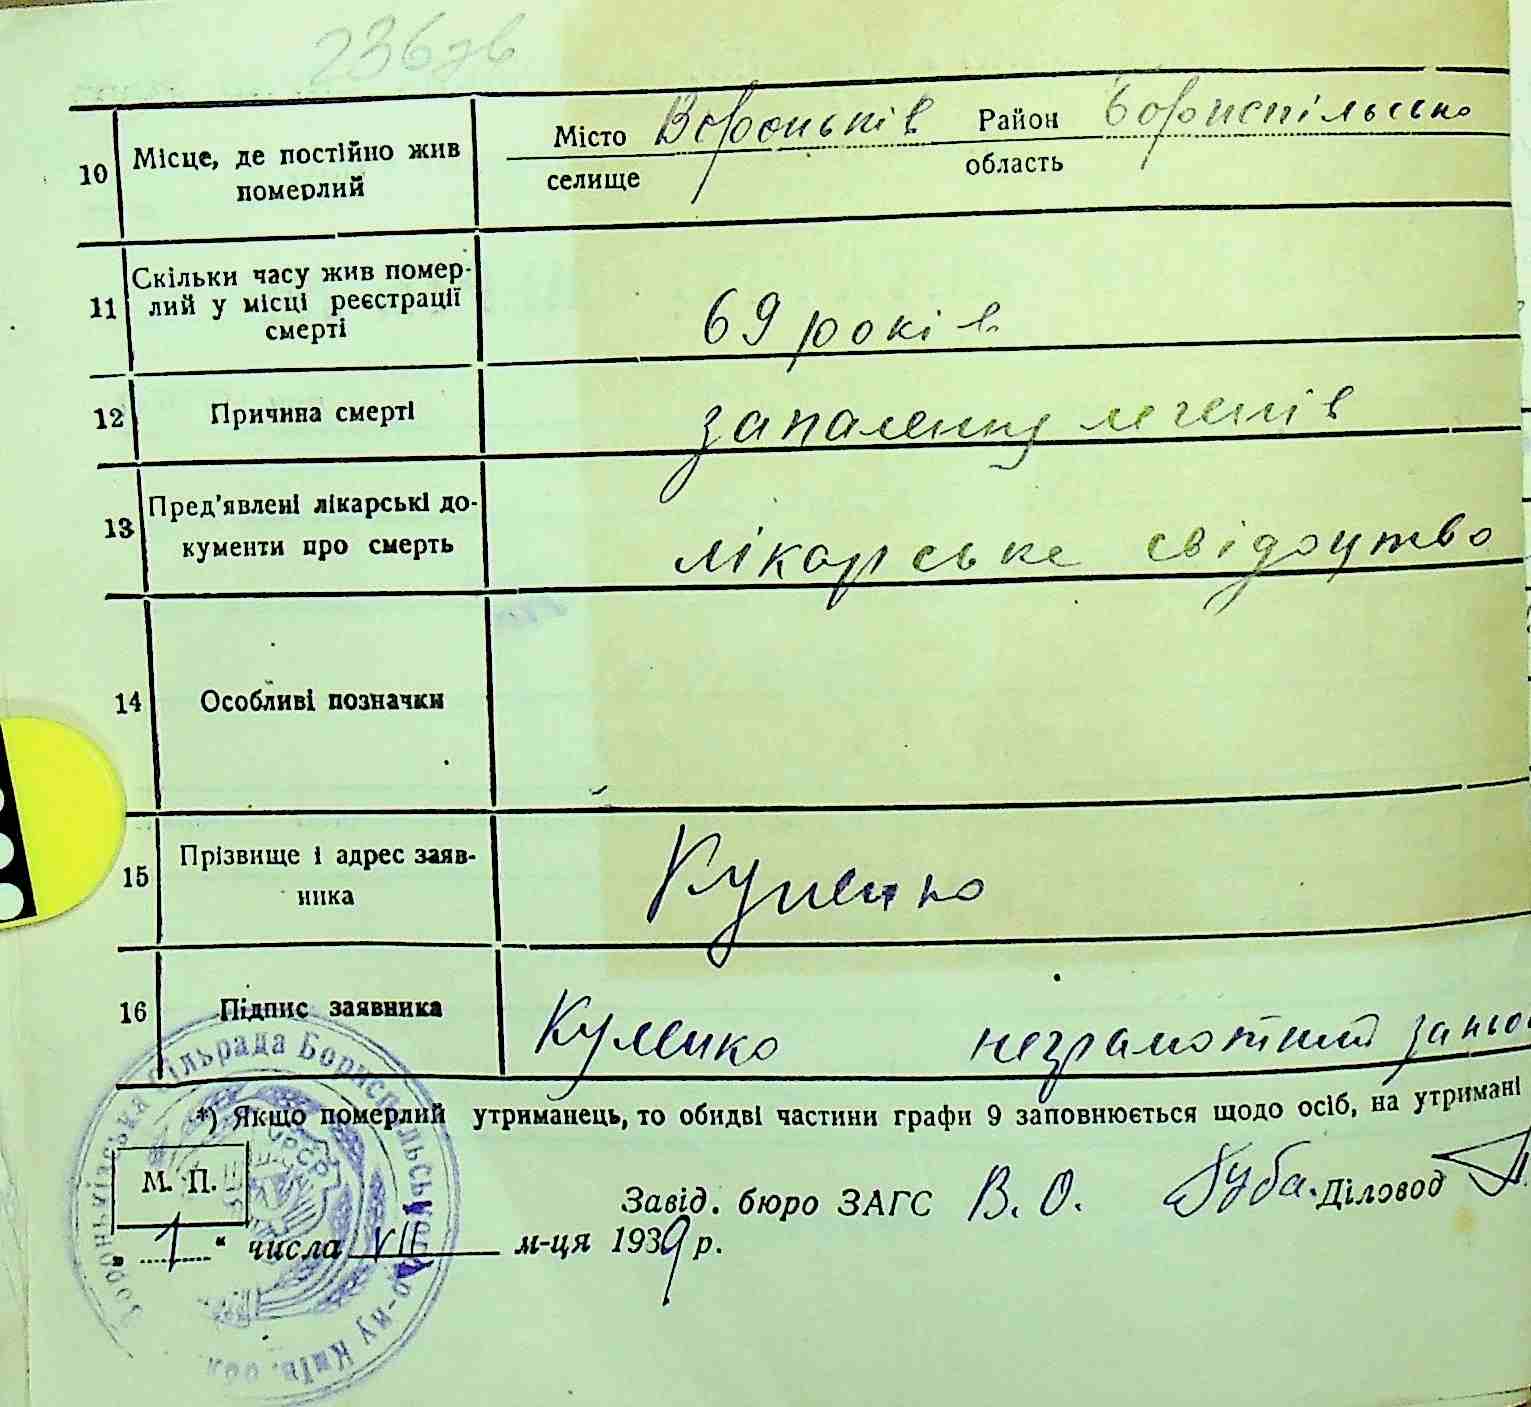 236зв
10 Місце, де постійно жив
померлий
Місто Вороньків Район Бориспільсько
селище область
11 Скільки часу жив помер-
лий у місці реєстрації
смерті
69 років
12 Причина смерті
запалення легенів
13 Пред'явлені лікарські до-
кументи про смерть
лікарське свідоцтво
14 Особливі позначки
15 Прізвище і адрес заяв-
ника
16 Підпис заявника
неграмотний
*) Якщо померлий утриманець, то обидві частини графи 9 заповнюється щодо осіб, на утримані
М. П.
Завід. бюро ЗАГС В. О. Губа. Діловод
„ 1 “ числа VII м-ця 1939 р.
Вороньківська сільрада Бориспільського р-ну Київ. обл.
УРСР